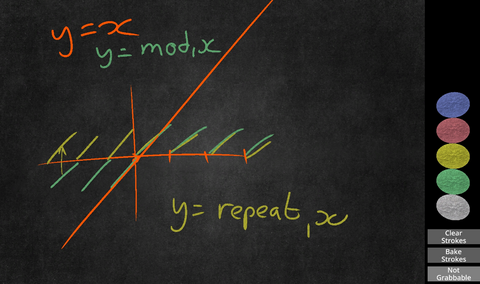 y=x
y=mod,x
y=repeat,x
Clear
Strokes
Bake
Strokes
Not
Grabbable